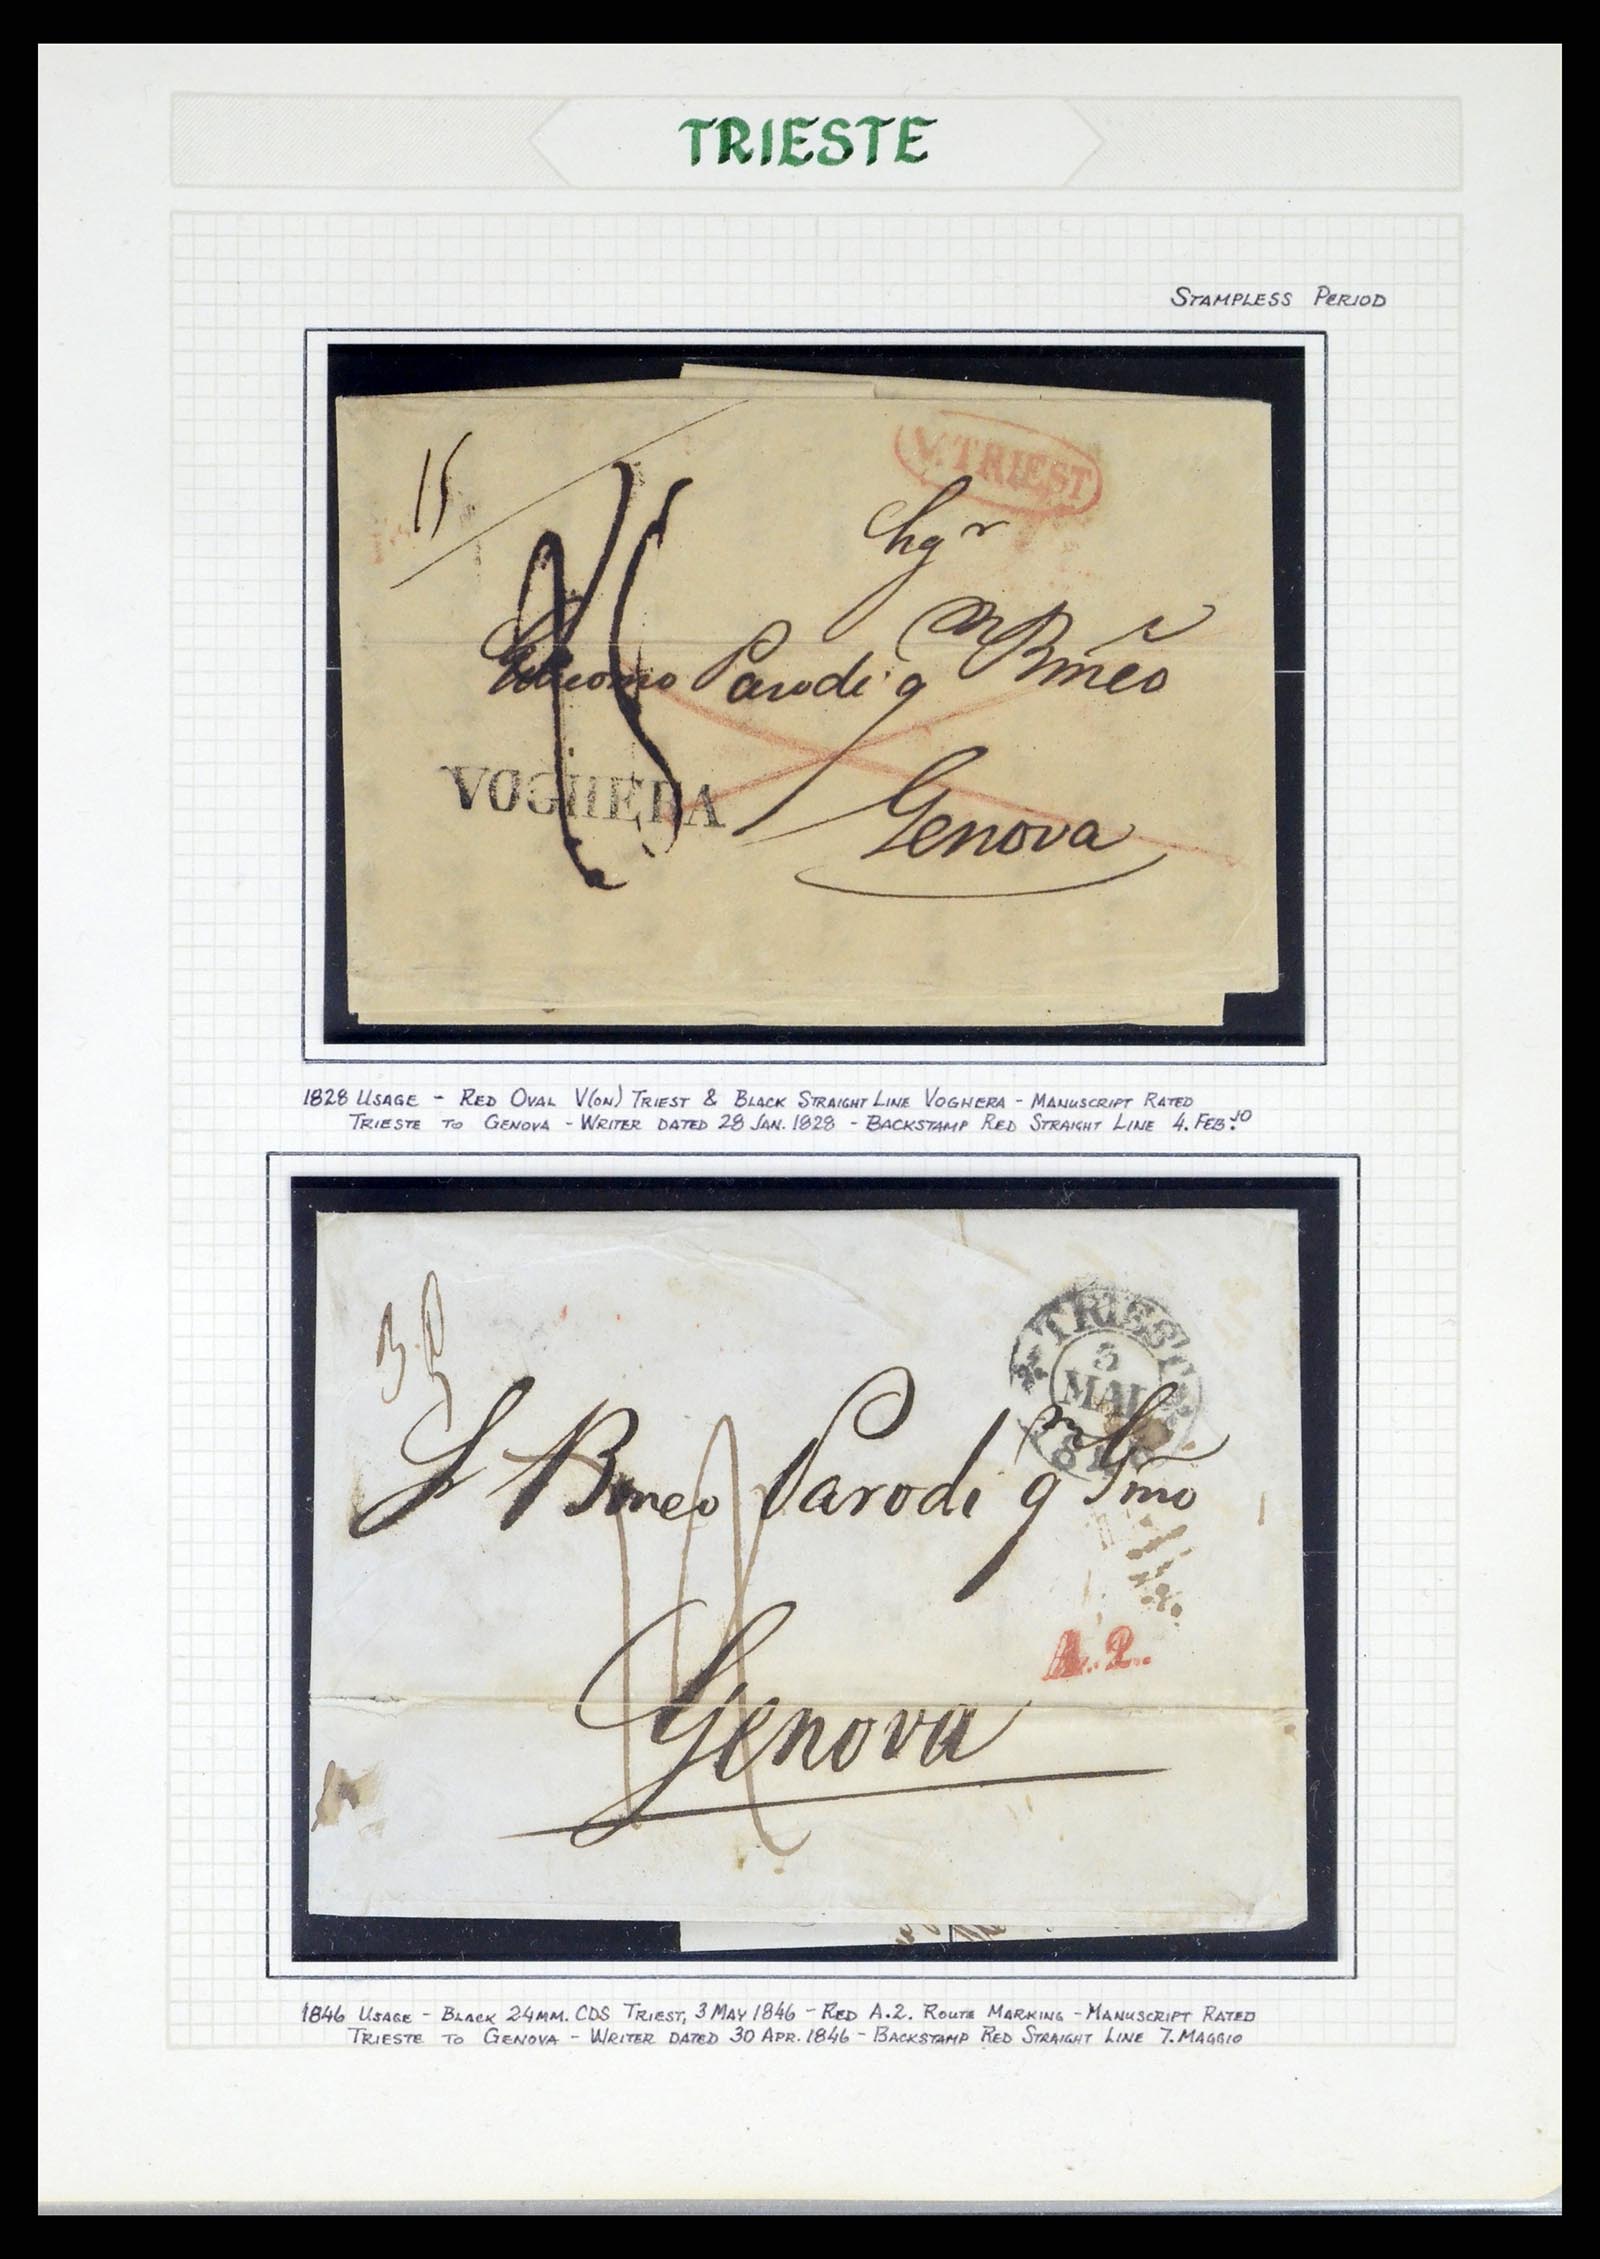 TRIESTE
STAMPLESS PERIOD
15
V. TRIEST
Giacomo Parodi q Bmeo
VOGHERA
Genova
1828 USAGE - RED OVAL V(ON) TRIEST & BLACK STRAIGHT LINE VOGHERA - MANUSCRIPT RATED
TRIESTE TO GENOVA - WRITER DATED 28 JAN. 1828 - BACKSTAMP RED STRAIGHT LINE 4. FEB.
TRIEST
3
MAI
Bmeo Parodi q Gmo
A. 2.
Genova
1846 USAGE - BLACK 24MM. CDS TRIEST, 3 MAY 1846 - RED A.2. ROUTE MARKING - MANUSCRIPT RATED
TRIESTE TO GENOVA - WRITER DATED 30 APR. 1846 - BACKSTAMP RED STRAIGHT LINE 7. MAGGIO